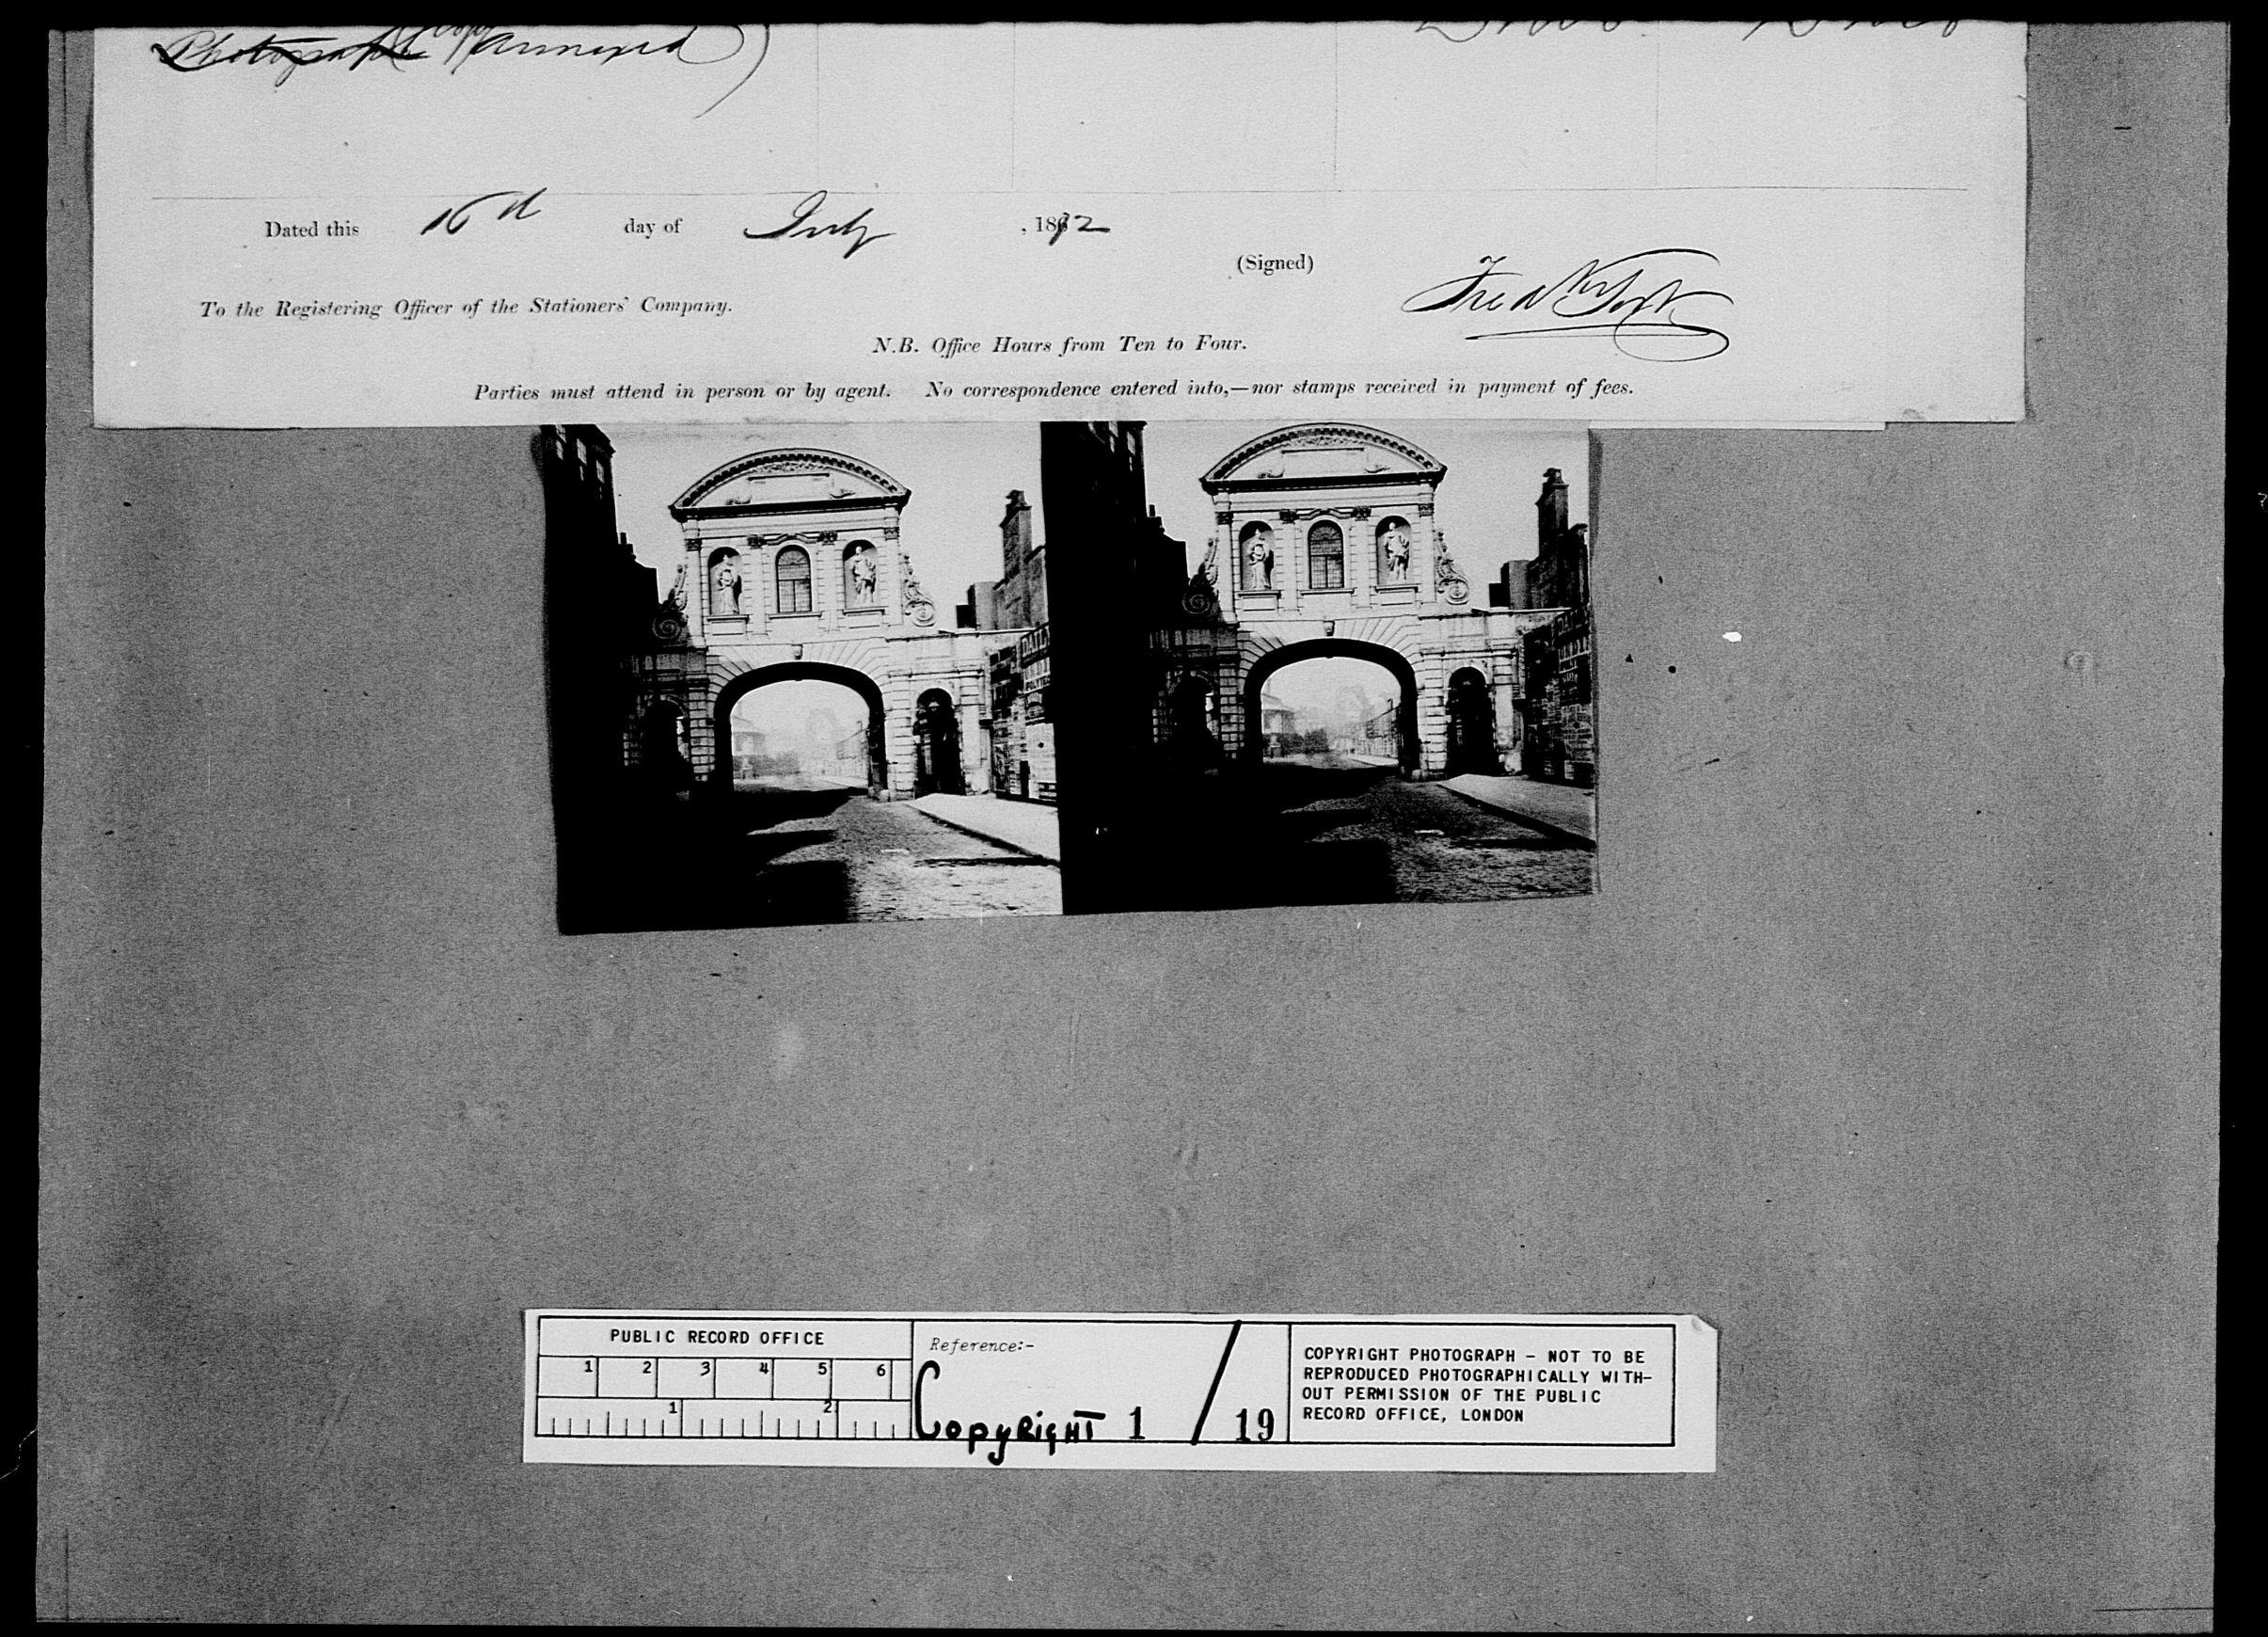 Photograph (Copy annexed)
Dated this 16th day of July , 1872
(Signed) Fredk York
To the Registering Officer of the Stationers' Company.
N.B. Office Hours from Ten to Four.
Parties must attend in person or by agent. No correspondence entered into,—nor stamps received in payment of fees.
PUBLIC RECORD OFFICE
1 2 3 4 5 6
1 2
Reference:-
Copyright 1 / 19
COPYRIGHT PHOTOGRAPH - NOT TO BE
REPRODUCED PHOTOGRAPHICALLY WITH-
OUT PERMISSION OF THE PUBLIC
RECORD OFFICE, LONDON